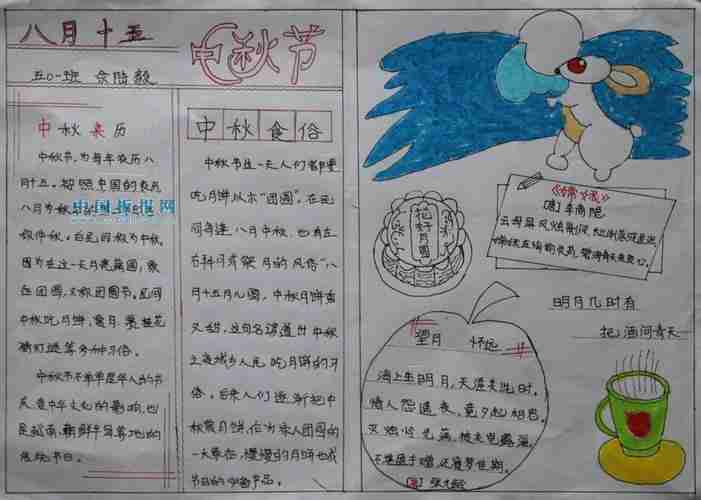 八月十五
中秋节
五〇一班
中秋来历
中秋节,为每年农历八
月十五。按照中国的农历
八月为秋
中国报报网
仲秋。白民间称为中秋,
因为在这一天月亮满圆,象
征团圆,又称团圆节。民间
中秋吃月饼,赏月,赏桂花
猜灯谜等多种习俗。
中秋节不单单是华人的节
庆,受中华文化的影响,也
是越南,朝鲜半岛等地的
传统节日。
中秋食俗
中秋节这一天人们都要
吃月饼以示“团圆”。在民
间每逢八月中秋,也有左
右拜月的风俗“八
月十五月儿圆,中秋月饼香
又甜,这句名谚道出中秋
之夜城乡人民吃月饼的习
俗。后来人们逐渐把中
秋赏月饼,作为家人团圆的
一大象征,慢慢的月饼也成
节日的必备产品。
花好月圆
《嫦娥》
[唐]李商隐
云母屏风烛影深,长河渐落晓星沉
嫦娥应悔偷灵药,碧海青天夜夜心。
明月几时有
把酒问青天
望月 怀远
海上生明月,天涯共此时。
情人怨遥夜,竟夕起相思。
灭烛怜光满,披衣觉露滋。
不堪盈手赠,还寝梦佳期。
[唐]张九龄